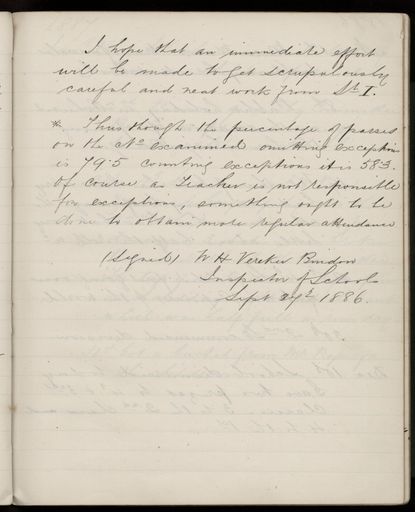 I hope that an immediate effort
will be made to get scrupulously
careful and neat work from St I.
* Thus though the percentage of passes
on the No examined omitting exceptions
is 79.5 counting exceptions it is 58.3.
Of course as Teacher is not responsible
for exceptions, something ought to be
done to obtain more regular attendance
(Signed) W H Vereker Bindon
Inspector of Schools
Sept 29th 1886.